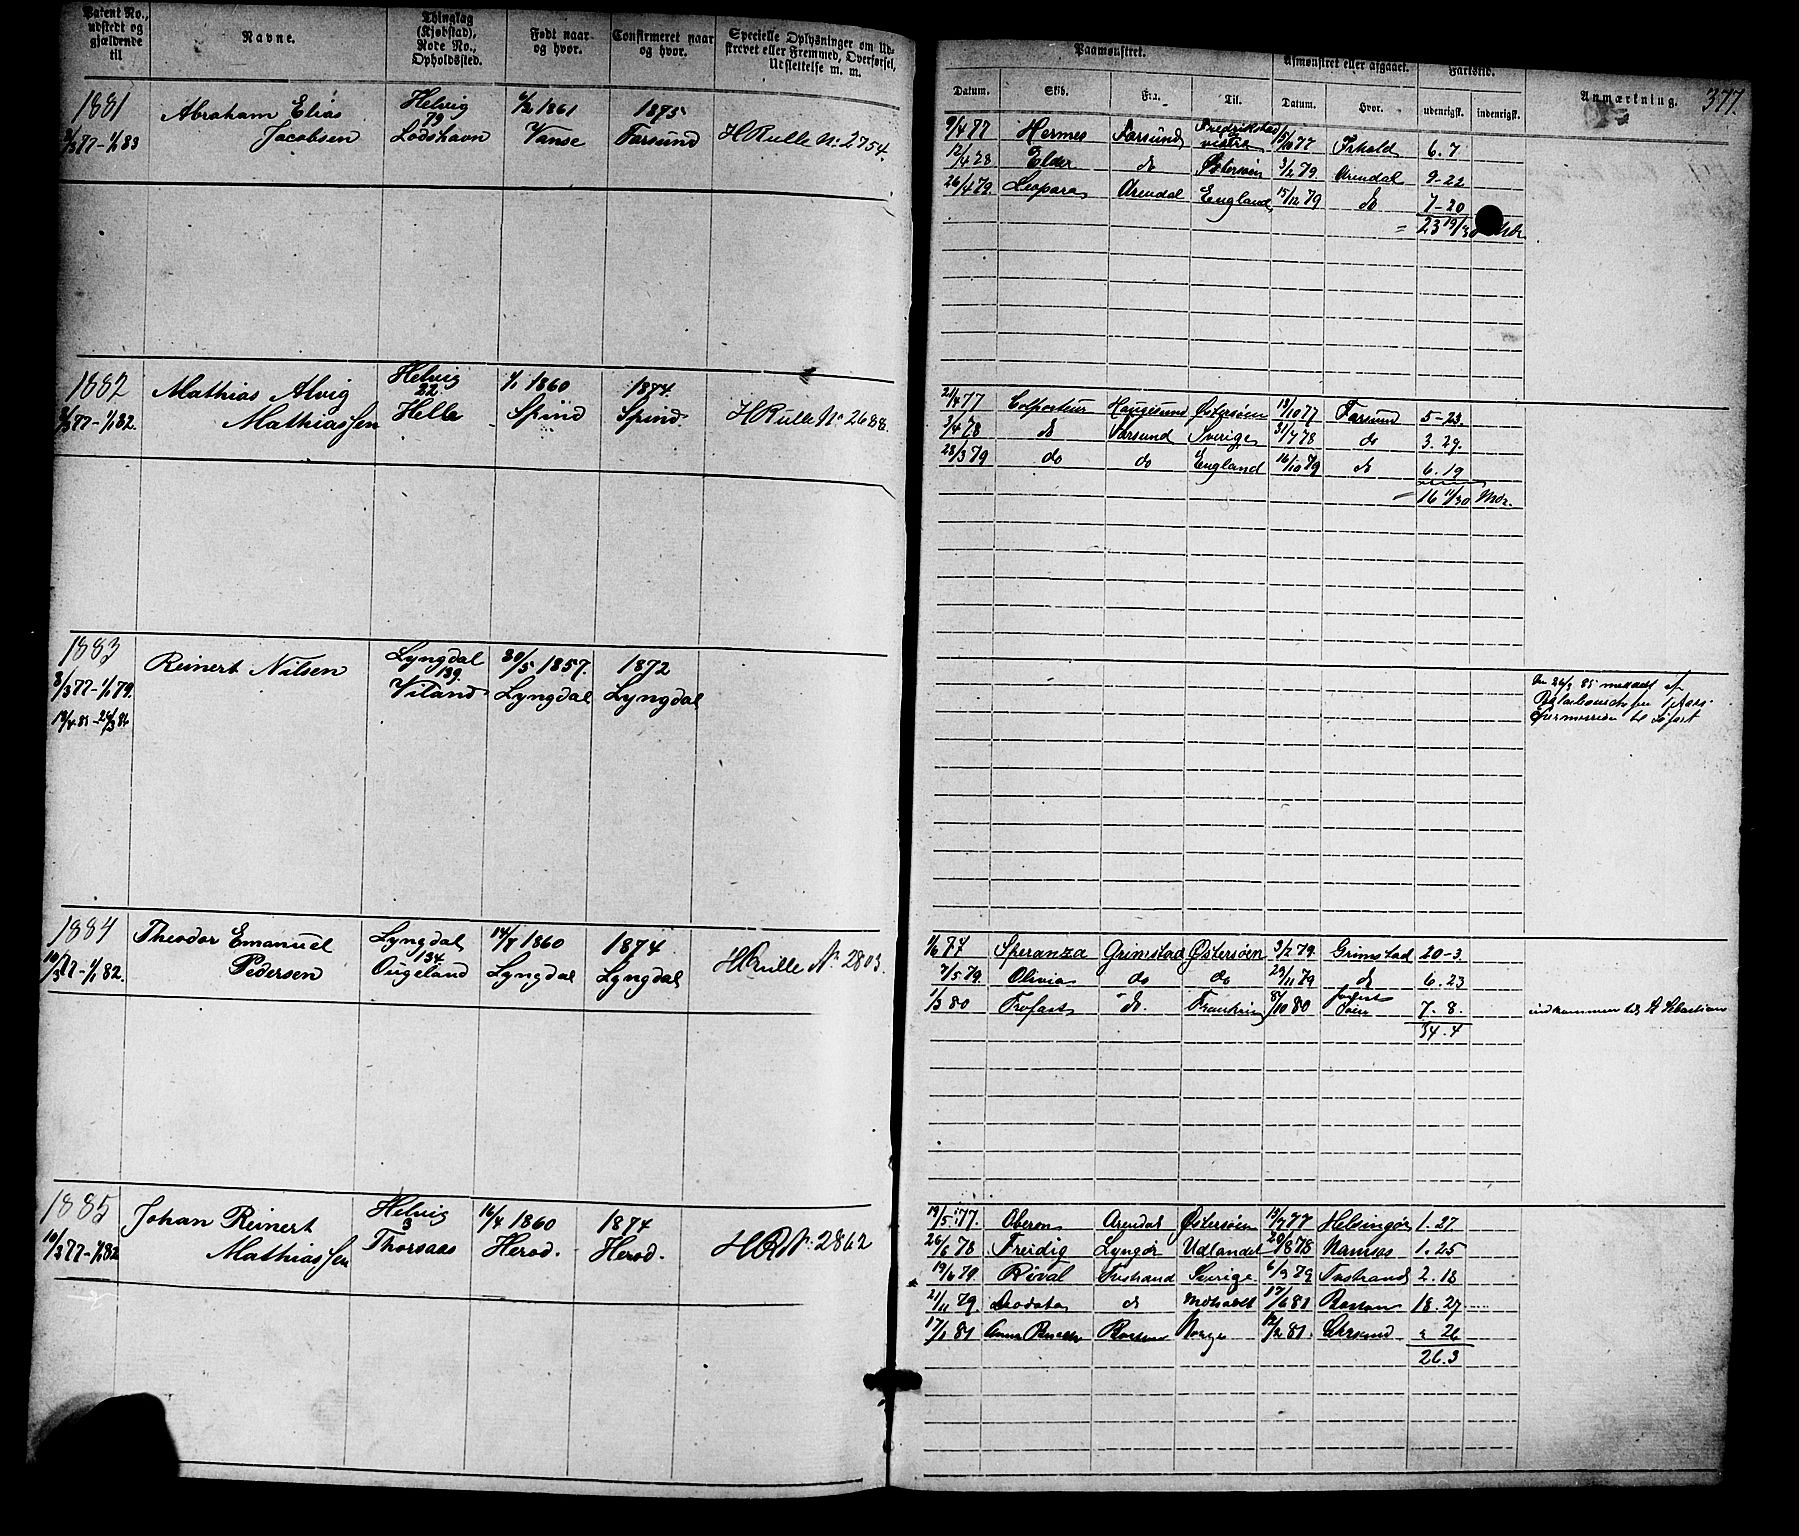 Patent No., udstedt og gjældende til
Navne.
Thinglag (Kjøbstad), Rode No., Opholdssted.
Født naar og hvor.
Confirmeret naar og hvor.
Specielle Oplysninger om Udskrevet eller Fremmed, Overførsel, Udslettelse m. m.
Paamønstret.
Afmønstret eller afgaaet.
Fartstid.
Anmærkning.
377.
Datum.
Skib.
Fra.
Til.
Datum.
Hvor.
udenrigsk.
indenrigsk.
1881
Abraham Elias Jacobsen
Helvig 79 Lodshavn
6/2 1861 Vanse
1875 Farsund
HRulle No 2754.
9/4 77 Hermes Farsund Fredrikstad 15/10 77 6.7
12/4 78 Elder do Østersøen 3/2 79. Arendal 9-22
26/4 79. Arendal England 15/12 79 do 7-20
= 23 19/30 Mdr
1882
Mathias Alvig Mathiassen
Helvig 22. Helle
1/1 1860 Spind
1874. Spind.
HRulle No 2688.
21/4 77 Colporteur Haugesund Østersøen 13/10 77 Farsund 5-23.
3/4 78 do Farsund Sverige 31/7 78 do 3.29.
28/3 79 do do England 16/10 79 do 6.19
= 16 11/30 Mdr.
1883
3/3 77-1/1 79.
Reinert Nilsen
Lyngdal 139. Viland
30/5 1857. Lyngdal
1872 Lyngdal
1884
10/3 77-1/1 82.
Theodor Emanuel Pedersen
Lyngdal 134 Ougeland
14/7 1860 Lyngdal
1874 Lyngdal
HRulle No 2803.
1/6 77 Speranza Grimstad Østersøen 3/2 79. Grimstad 20-3.
7/5 79. Olivia do do 29/11 79 do 6.23
1/3 80 Trofast do. 8/10 80 7.8.
34.4
indkommen til St Sebastian
1885
10/3 77-1/1 82
Johan Reinert Mathiassen
Helvig 3 Thorsaas
16/4 1860 Herod.
1874 Herod.
HR No. 2862
19/5 77. Oberon Arendal Østersøen 13/7 77 Helsingør 1.27
26/6 78 Freidig Lyngør Udlandet 20/8 78 Namsos 1.25
19/6 79. Rival Sverige 6/9 79 2.18
21/11 79. do 18.27
17/1 81 Norge 12/2 81. " 26
26.3